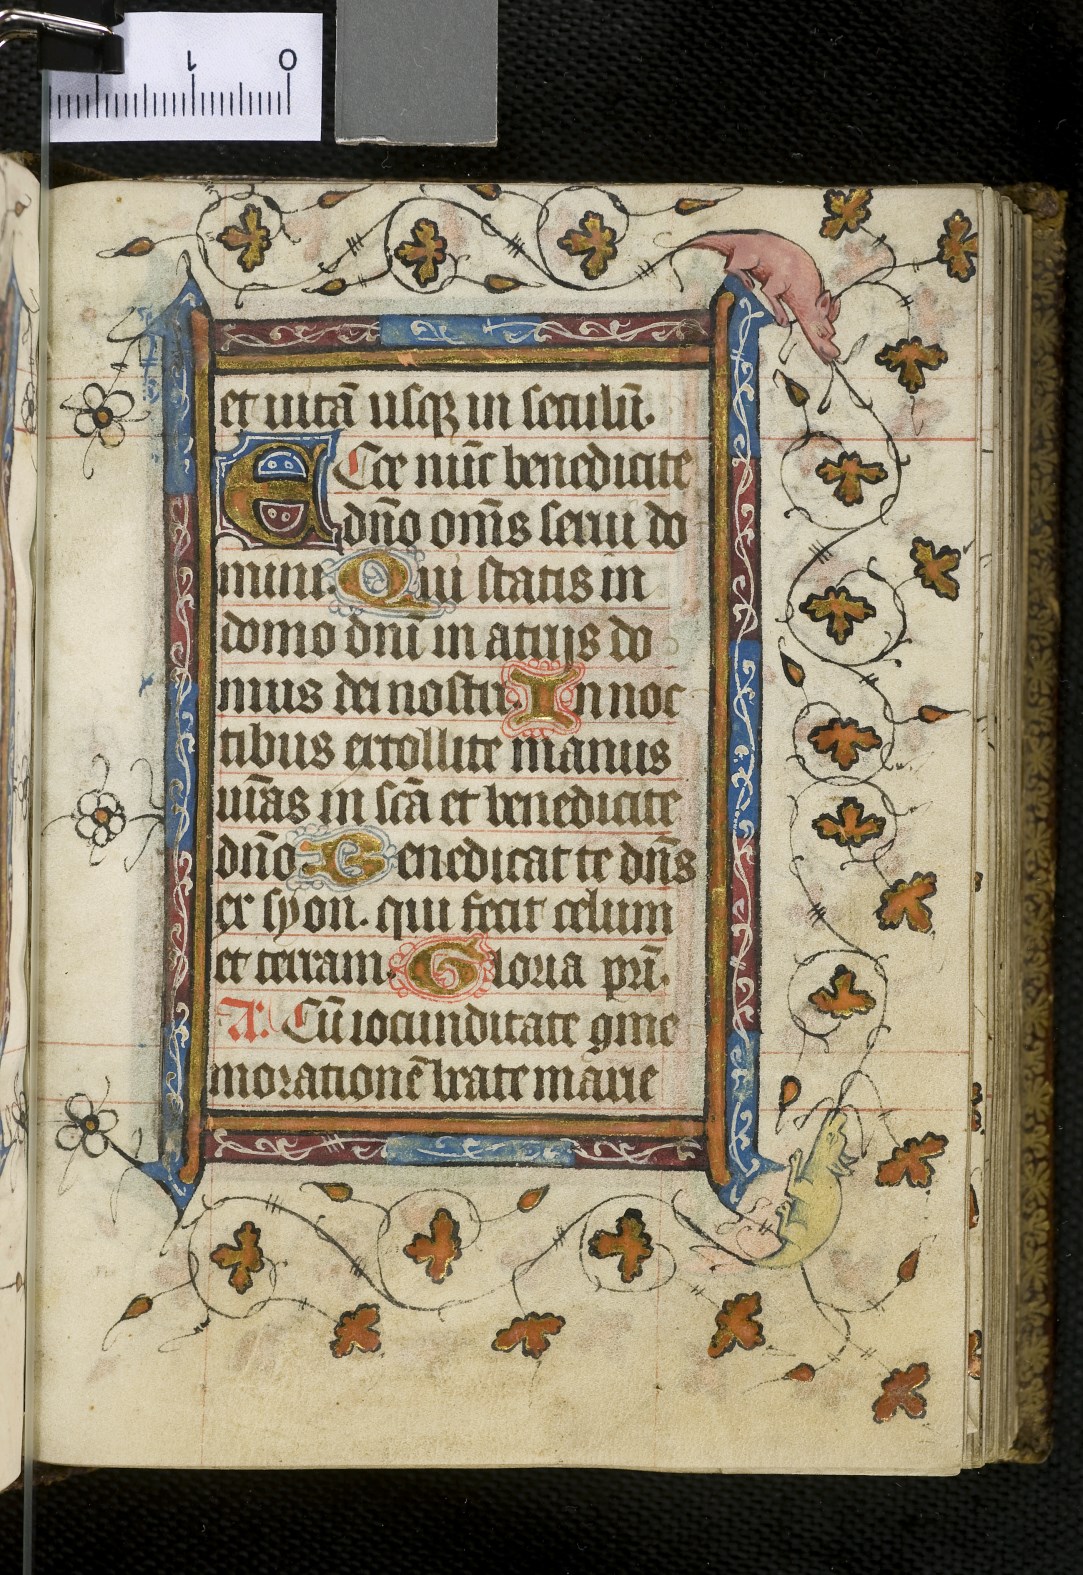 1 0
et uitā usqꝫ in seculū.
Ecce nūc benedicite
dn̄o om̄s serui do
mini. Qui statis in
domo dn̄i in atrijs do
mus dei nostri. In noc
tibus extollite manus
ur̄as in sc̄a et benedicite
dn̄o. Benedicat te dn̄s
ex syon. qui fecit celum
et terram. Gloria pr̄i.
A: Cū iocunditate gme
morationē beate marie